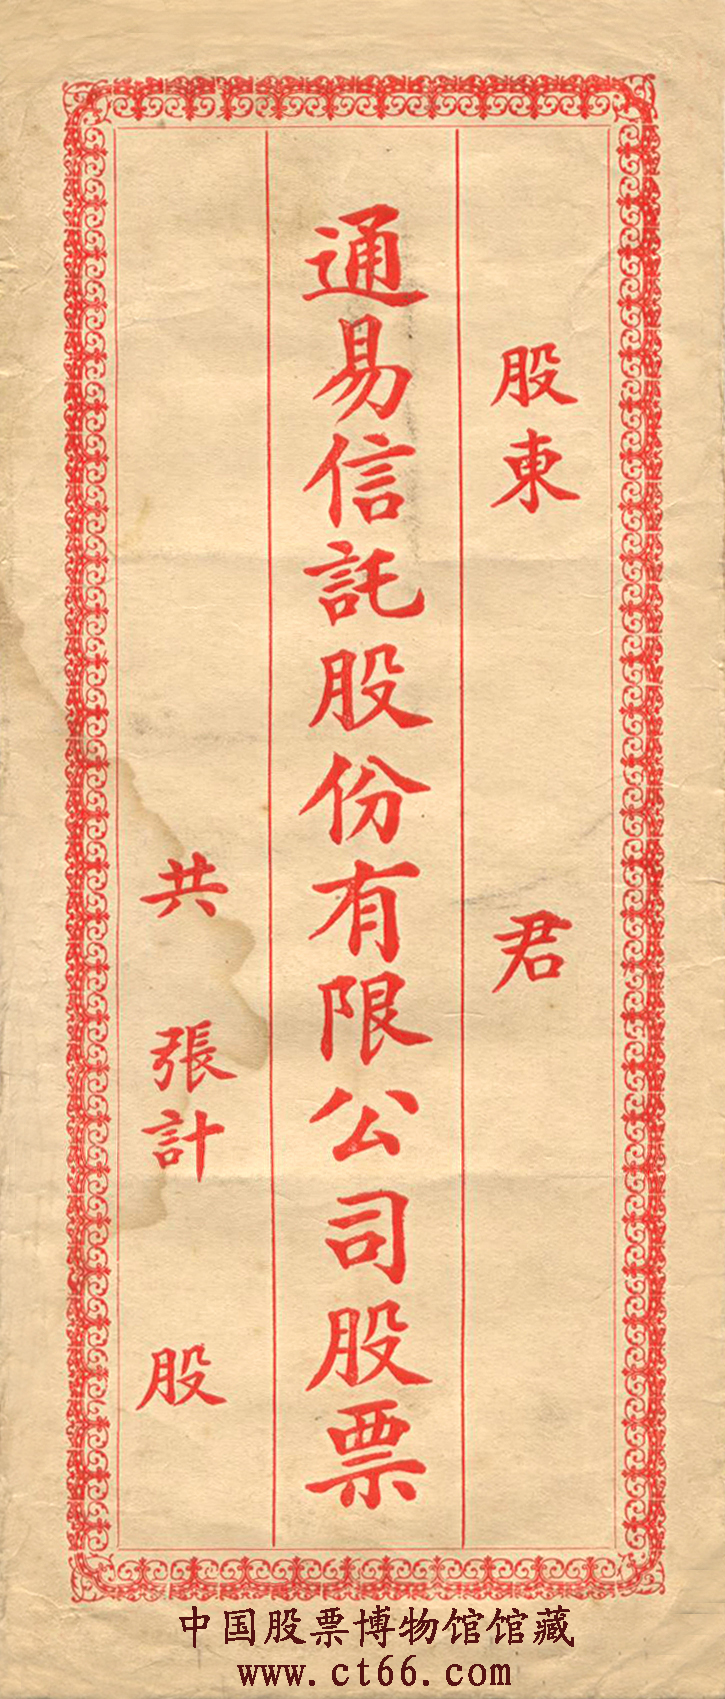 股東 君
通易信託股份有限公司股票
共 張計 股
中国股票博物馆馆藏
www.ct66.com